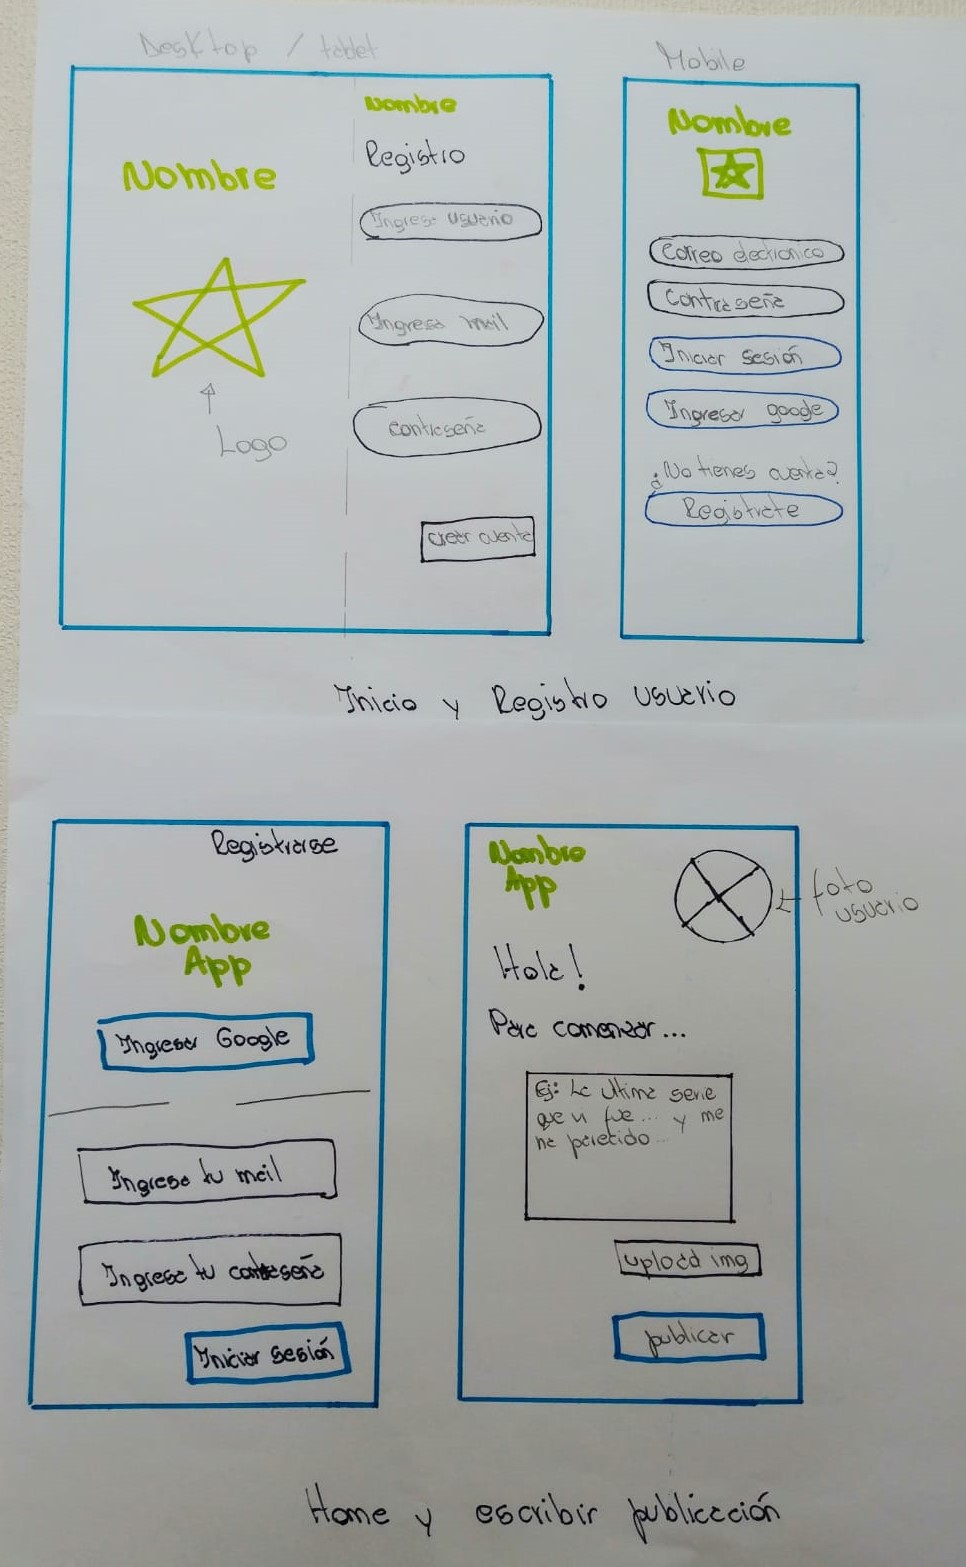 Desktop / tablet
Nombre
Logo
Nombre
Registro
Ingrese usuario
Ingresa mail
contraseña
crear cuenta
Mobile
Nombre
Correo electronico
Contraseña
Iniciar sesión
Ingresar google
¿No tienes cuenta?
Registrate
Inicio y Registro usuario
Registrarse
Nombre
App
Ingresar Google
Ingresa tu mail
Ingresa tu contraseña
Iniciar sesión
Nombre
App
foto
usuario
Hola!
Para comenzar...
Ej: La ultima serie
que vi fue... y me
ha parecido...
upload img
publicar
Home y escribir publicación